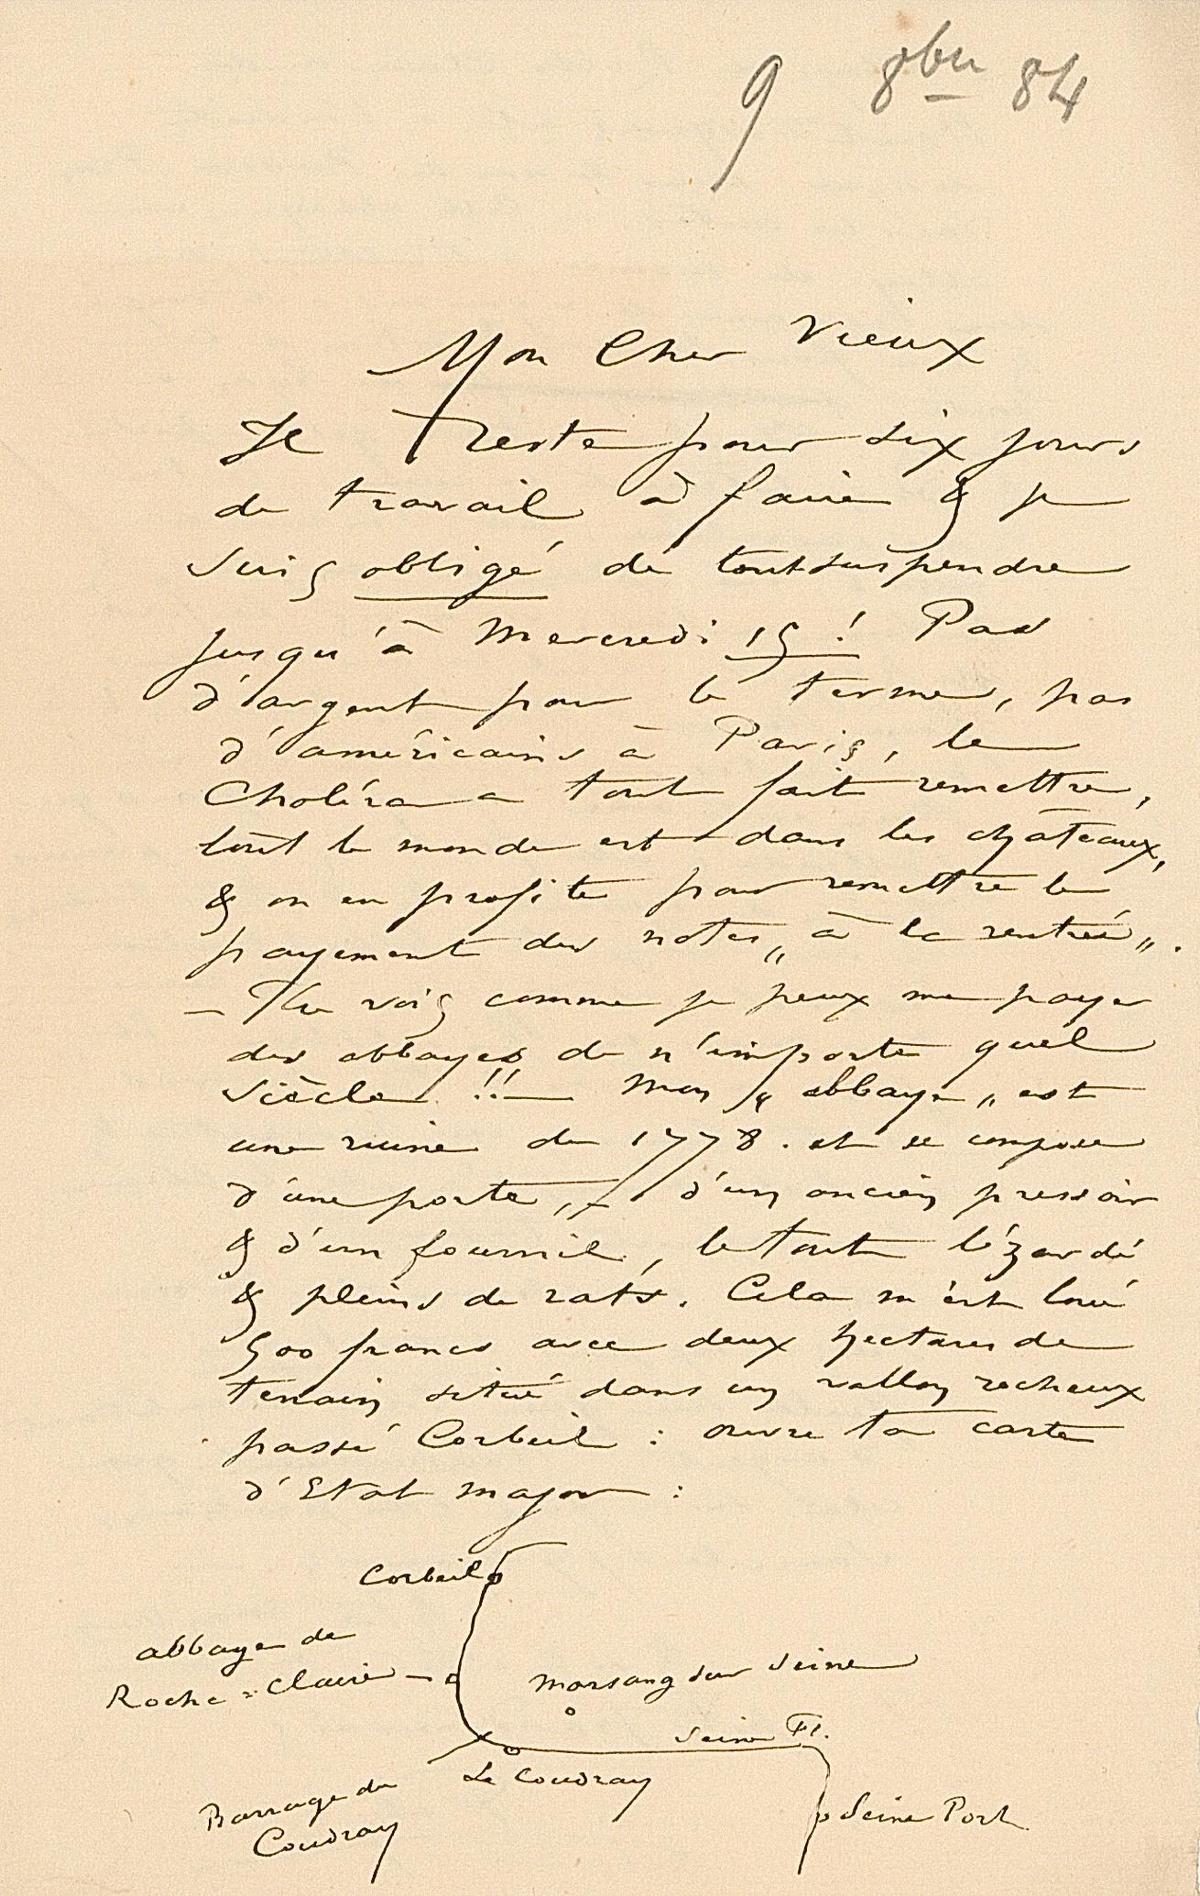 9 8bre 84
Mon Cher Vieux
Je reste pour six jours
de travail à faire & je
suis obligé de tout suspendre
jusqu'à Mercredi 15 ! Pas
d'argent pour le terme, pas
d'américains à Paris, le
Choléra a tout fait remettre,
tout le monde est dans les châteaux,
& on en profite pour remettre le
payement des notes „ à la rentrée „.
— Tu vois comme je peux me payer
des abbayes de n'importe quel
siècle !! — Mon „ abbaye „ est
une ruine de 1778. et se compose
d'une porte, d'un ancien pressoir
& d'un fournil, le tout lézardé
& pleins de rats. Cela m'est loué
500 francs avec deux hectares de
terrain situé dans un vallon rocheux
passé Corbeil : ouvre ta carte
d'Etat major :
Corbeil
abbaye de
Roche = Claire
Morsang sur Seine
Seine Fl.
Le Coudray
Barrage du
Coudray
Seine Port